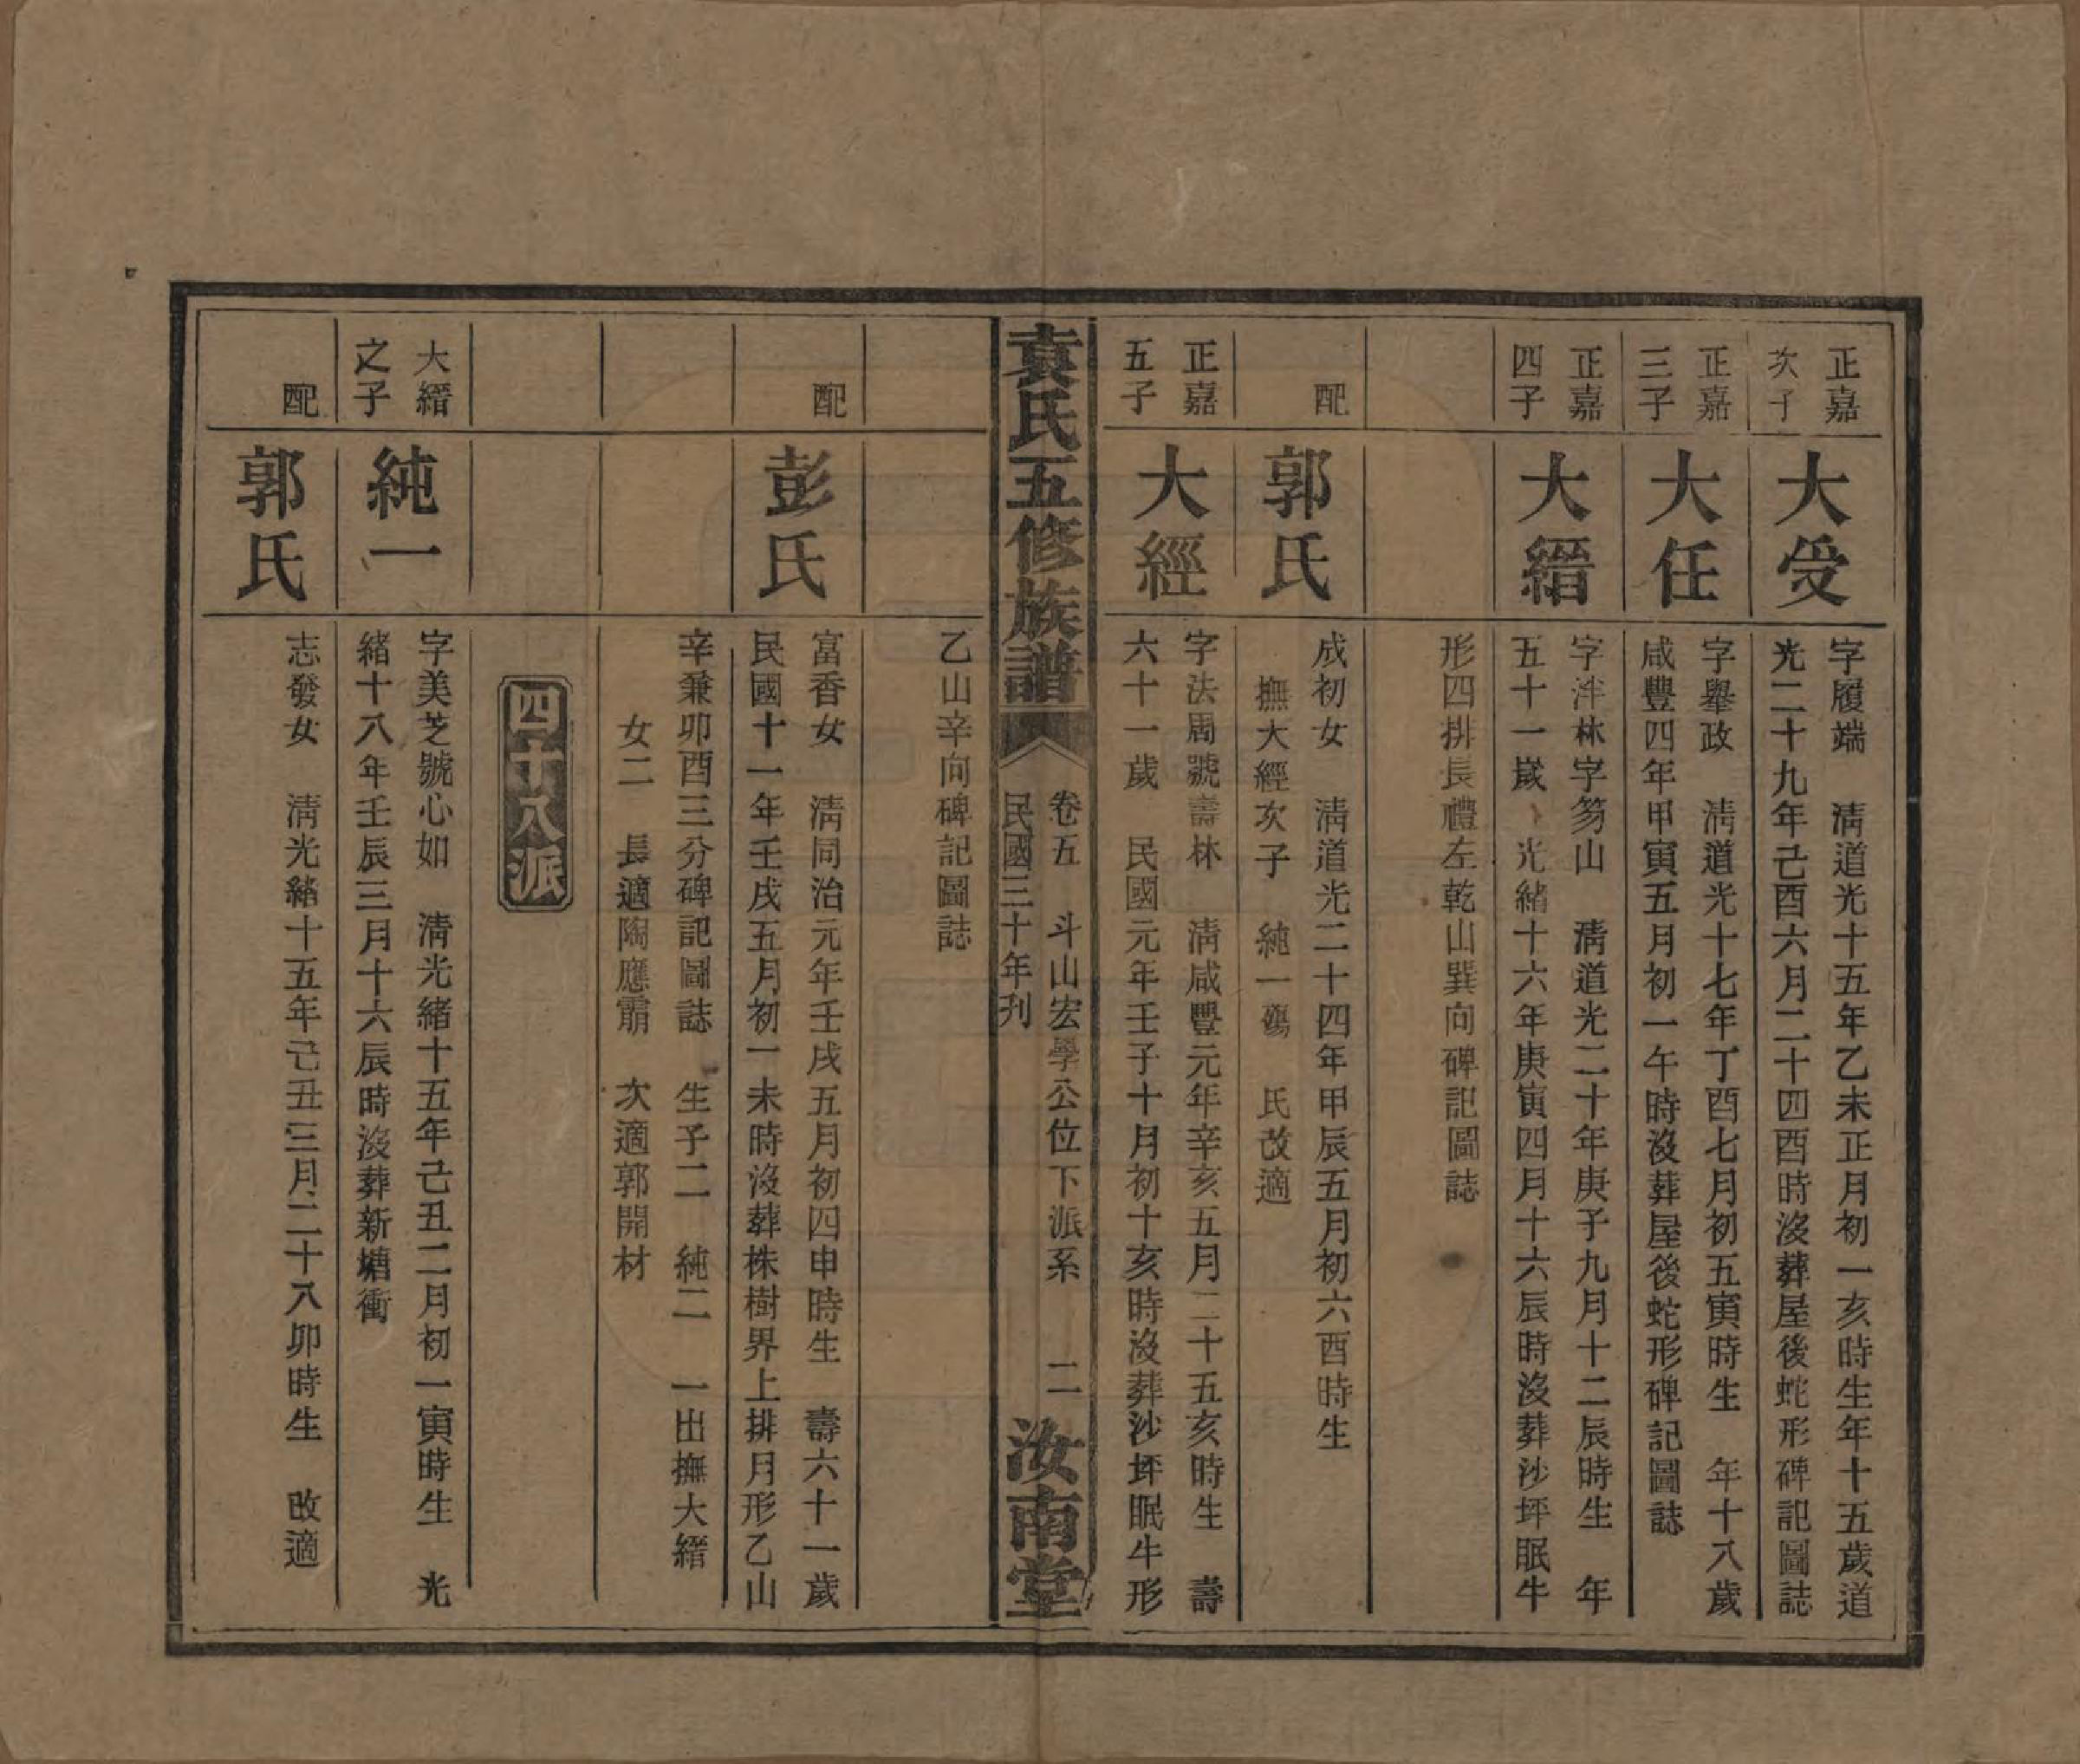 正嘉
次子
大受
字履端　清道光十五年乙未正月初一亥時生年十五歲道
光二十九年己酉六月二十四酉時沒葬屋後蛇形碑記圖誌
正嘉
三子
大任
字舉政　清道光十七年丁酉七月初五寅時生　年十八歲
咸豐四年甲寅五月初一午時沒葬屋後蛇形碑記圖誌
正嘉
四子
大縉
字泮林字笏山　清道光二十年庚子九月十二辰時生　年
五十一歲　光緒十六年庚寅四月十六辰時沒葬沙坪眠牛
形四排長禮左乾山巽向碑記圖誌
配
郭氏
成初女　清道光二十四年甲辰五月初六酉時生
撫大經次子　純一殤　氏改適
正嘉
五子
大經
字法周號壽林　清咸豐元年辛亥五月二十五亥時生　壽
六十一歲　民國元年壬子十月初十亥時沒葬沙坪眠牛形
袁氏五修族譜
卷五　斗山宏學公位下派系　二
民國三十年刊
汝南堂
乙山辛向碑記圖誌
配
彭氏
富香女　清同治元年壬戌五月初四申時生　壽六十一歲
民國十一年壬戌五月初一未時沒葬株樹界上排月形乙山
辛兼卯酉三分碑記圖誌　生子二　純二　一出撫大縉
女二　長適陶應霸　次適郭開材
四十八派
大縉
之子
純一
字美芝號心如　清光緒十五年己丑二月初一寅時生　光
緒十八年壬辰三月十六辰時沒葬新塘衝
配
郭氏
志發女　清光緒十五年己丑三月二十八卯時生　改適